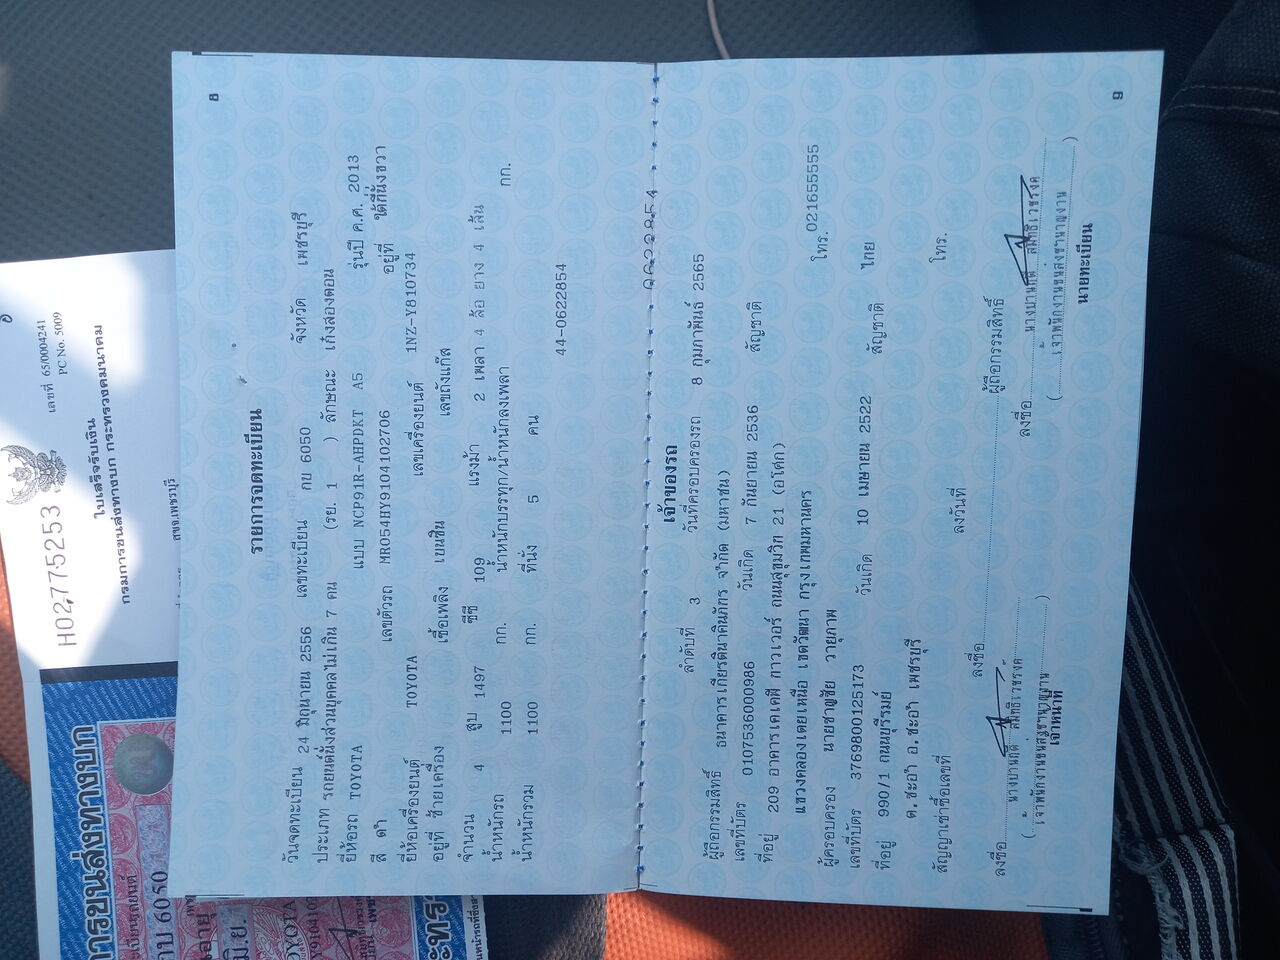 8
รายการจดทะเบียน
วันจดทะเบียน 24 มิถุนายน 2556 เลขทะเบียน กบ 6050 จังหวัด เพชรบุรี
ประเภท รถยนต์นั่งส่วนบุคคลไม่เกิน 7 คน (รย. 1 ) ลักษณะ เก๋งสองตอน
ยี่ห้อรถ TOYOTA แบบ NCP91R-AHPDKT A5 รุ่นปี ค.ศ. 2013
สี ดำ เลขตัวรถ MR054HY9104102706 อยู่ที่ ใต้ที่นั่งขวา
ยี่ห้อเครื่องยนต์ TOYOTA เลขเครื่องยนต์ 1NZ-Y810734
อยู่ที่ ซ้ายเครื่อง เชื้อเพลิง เบนซิน เลขถังแก๊ส
จำนวน 4 สูบ 1497 ซีซี 109 แรงม้า 2 เพลา 4 ล้อ ยาง 4 เส้น
น้ำหนักรถ 1100 กก. น้ำหนักบรรทุก/น้ำหนักลงเพลา กก.
น้ำหนักรวม 1100 กก. ที่นั่ง 5 คน
44-0622854
0622854
เจ้าของรถ
ลำดับที่ 3 วันที่ครอบครองรถ 8 กุมภาพันธ์ 2565
ผู้ถือกรรมสิทธิ์ ธนาคารเกียรตินาคินภัทร จำกัด (มหาชน)
เลขที่บัตร 0107536000986 วันเกิด 7 กันยายน 2536 สัญชาติ
ที่อยู่ 209 อาคารเคเคพี ทาวเวอร์ ถนนสุขุมวิท 21 (อโศก)
แขวงคลองเตยเหนือ เขตวัฒนา กรุงเทพมหานคร
โทร. 021655555
ผู้ครอบครอง นายชาญชัย วายุภาพ
เลขที่บัตร 3769800125173 วันเกิด 10 เมษายน 2522 สัญชาติ ไทย
ที่อยู่ 990/1 ถนนบุรีรมย์
ต.ชะอำ อ.ชะอำ เพชรบุรี
โทร.
สัญญาเช่าซื้อเลขที่ ลงวันที่
ลงชื่อ ผู้ถือกรรมสิทธิ์
ลงชื่อ
เจ้าพนักงานขนส่งชำนาญงาน
เจ้าหน้าที่
ลงชื่อ
เจ้าพนักงานขนส่งชำนาญงาน
นายทะเบียน
9
H02775253
เลขที่ 65/0004241
PC No. 5009
ใบเสร็จรับเงิน
กรมการขนส่งทางบก กระทรวงคมนาคม
สขจ.เพชรบุรี
การขนส่งทางบก
กบ 6050
มิ.ย.